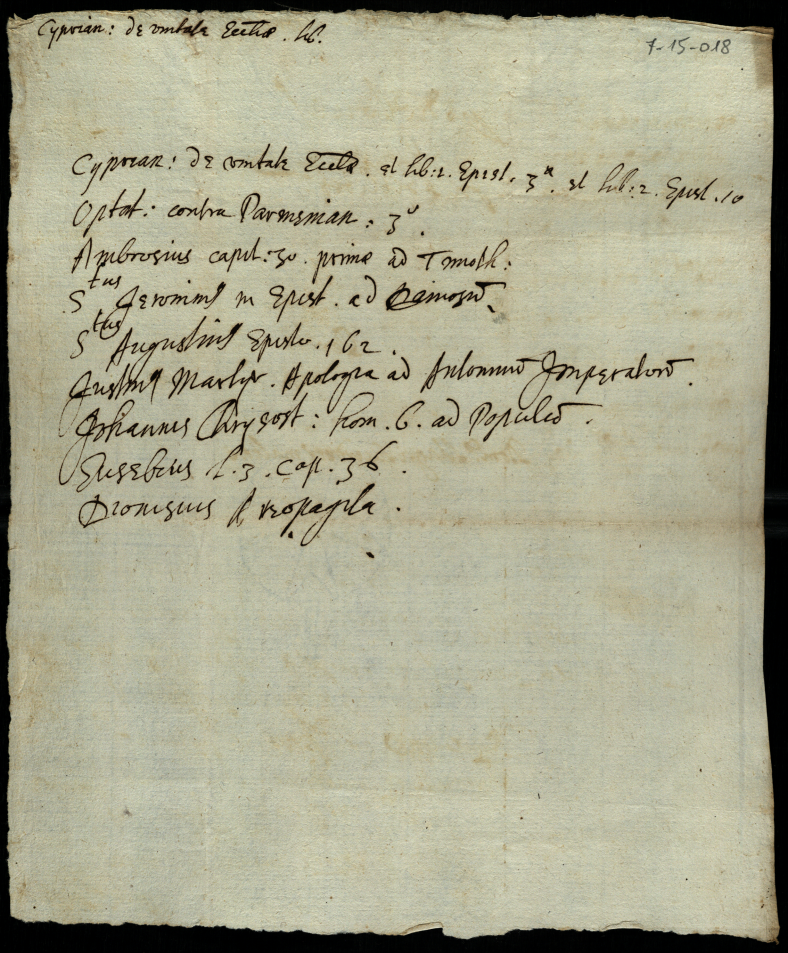 Cyprian: de unitate Eccliæ. lib.
7-15-018
Cyprian: de unitate Eccliæ. et lib:1. Epist. 3ª. et lib:2. Epist. 10
Optat: contra Parmenian: 3º.
Ambrosius capit:3o. primæ ad Timoth:
Stus Jeronimus in Epist. ad Damasū
Stus Augustinus Episto. 162.
Justinus Martyr. Apologia ad Antoninū Imperatorē.
Johannes Chrysost: hom. 6. ad Populū.
Eusebius l. 3. cap. 36.
Dionisius Areopagita.